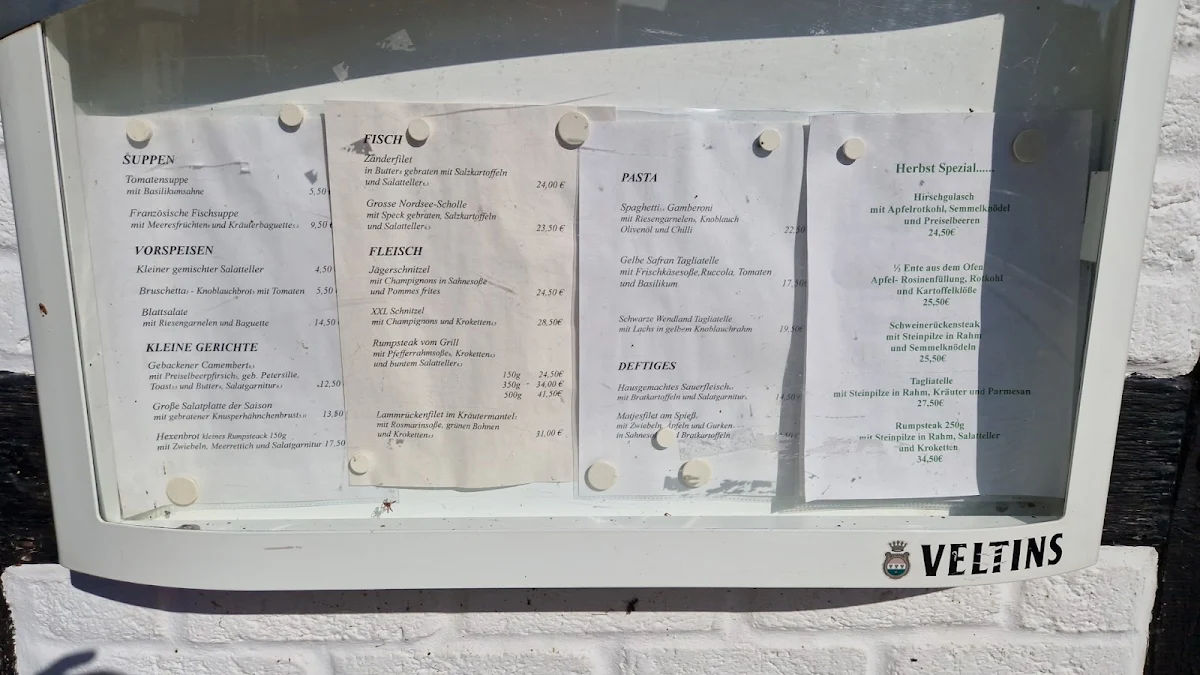 SUPPEN
Tomatensuppe
mit Basilikumsahne 5,50
Französische Fischsuppe
mit Meeresfrüchten und Kräuterbaguette 9,50 €
VORSPEISEN
Kleiner gemischter Salatteller 4,50
Bruschetta - Knoblauchbrot mit Tomaten 5,50
Blattsalate
mit Riesengarnelen und Baguette 14,50
KLEINE GERICHTE
Gebackener Camembert
mit Preiselbeerpfirsich, geb. Petersilie,
Toast und Butter, Salatgarnitur 12,50
Große Salatplatte der Saison
mit gebratener Knusperhähnchenbrust 13,80
Hexenbrot kleines Rumpsteack 150g
mit Zwiebeln, Meerrettich und Salatgarnitur 17,50
FISCH
Zanderfilet
in Butter gebraten mit Salzkartoffeln
und Salatteller 24,00 €
Grosse Nordsee-Scholle
mit Speck gebraten, Salzkartoffeln
und Salatteller 23,50 €
FLEISCH
Jägerschnitzel
mit Champignons in Sahnesoße
und Pommes frites 24,50 €
XXL Schnitzel
mit Champignons und Kroketten 28,50€
Rumpsteak vom Grill
mit Pfefferrahmsoße, Kroketten
und buntem Salatteller
150g 24,50€
350g - 34,00 €
500g 41,50€
Lammrückenfilet im Kräutermantel
mit Rosmarinsoße, grünen Bohnen
und Kroketten 31,00 €
PASTA
Spaghetti Gamberoni
mit Riesengarnelen, Knoblauch
Olivenöl und Chilli 22,50
Gelbe Safran Tagliatelle
mit Frischkäsesoße,Ruccola, Tomaten
und Basilikum 17,50€
Schwarze Wendland Tagliatelle
mit Lachs in gelbem Knoblauchrahm 19,50€
DEFTIGES
Hausgemachtes Sauerfleisch
mit Bratkartoffeln und Salatgarnitur
Matjesfilet am Spieß
mit Zwiebeln, Äpfeln und Gurken
in Bratkartoffeln
Herbst Spezial......
Hirschgulasch
mit Apfelrotkohl, Semmelknödel
und Preiselbeeren
24,50€
½ Ente aus dem Ofen
Apfel- Rosinenfüllung, Rotkohl
und Kartoffelklöße
25,50€
Schweinerückensteak
mit Steinpilze in Rahm
und Semmelknödeln
25,50€
Tagliatelle
mit Steinpilze in Rahm, Kräuter und Parmesan
27,50€
Rumpsteak 250g
mit Steinpilze in Rahm, Salatteller
und Kroketten
34,50€
VELTINS